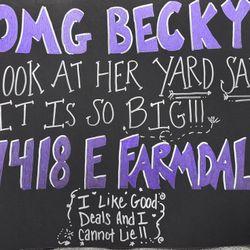 OMG BECKY
OOK AT HER YARD SA
IT IS SO BIG!!!
1418 E FARMDAL
{I Like Good
Deals And I
Cannot Lie!!}